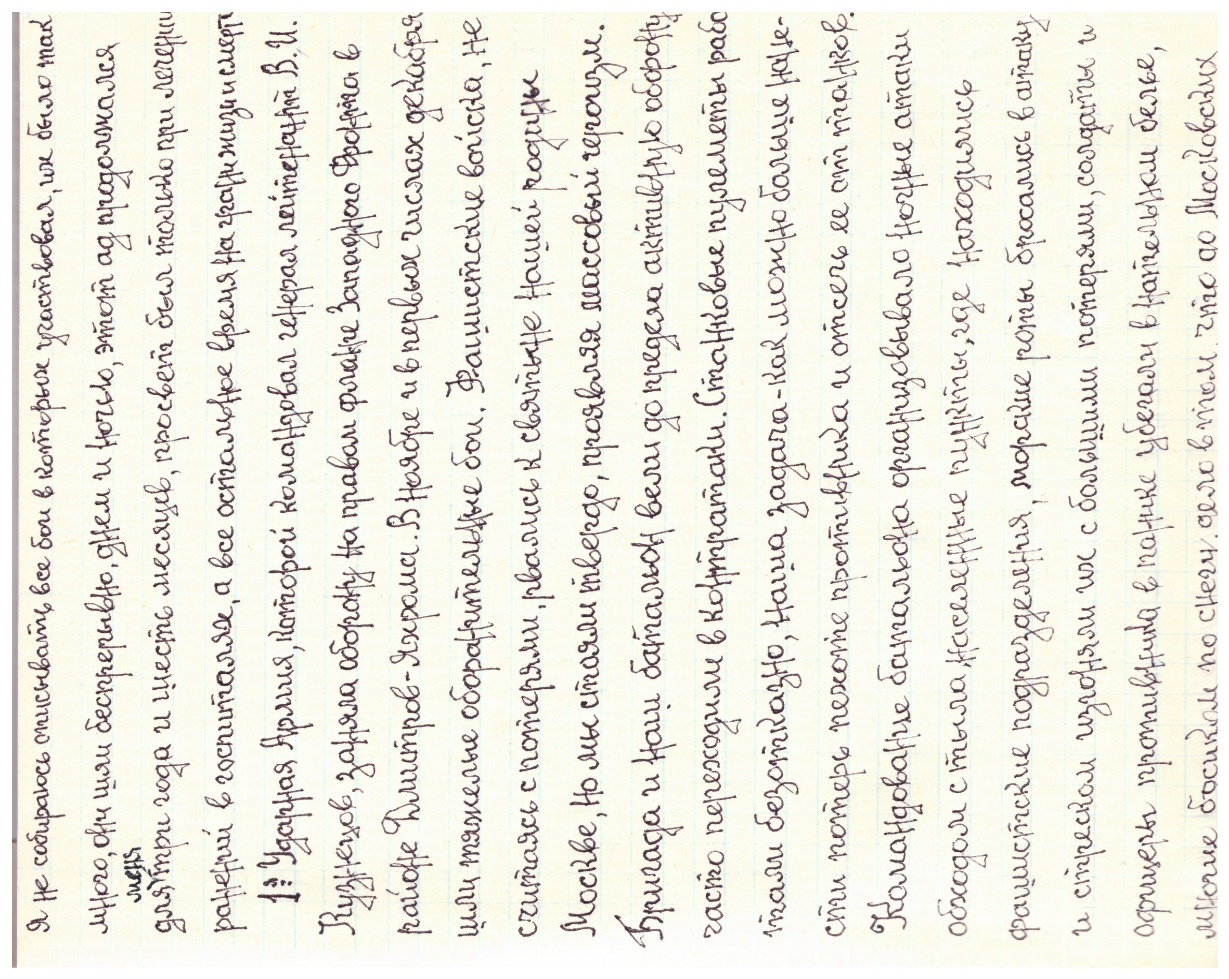 Я не собираюсь описывать все бои в которых участвовал, их было так
много, они шли беспрерывно, днем и ночью, этот ад продолжался
для меня три года и шесть месяцев, просвет был только при лечении
ранений в госпиталях, а все остальное время на грани жизни и смерти
1ая Ударная Армия, которой командовал генерал лейтенант В.И.
Кузнецов, заняла оборону на правом фланге Западного Фронта в
районе Дмитров-Яхрома. В ноябре и в первых числах декабря
шли тяжелые оборонительные бои. Фашистские войска, не
считаясь с потерями, рвались к святыне нашей родины
Москве, но мы стояли твердо, проявляя массовый героизм.
Бригада и наш батальон вели до предела активную оборону
часто переходили в контратаки. Станковые пулеметы рабо
тали безотказно, наша задача - как можно больше нане-
сти потерь пехоте противника и отсечь ее от танков.
Командование батальона организовывало ночные атаки
обходом с тыла, населенные пункты, где находились
фашистские подразделения, морские роты бросались в атаку
и с треском изгоняли их с большими потерями, солдаты и
офицеры противника в панике убегали в нательном белье,
многие босиком по снегу. дело в том, что до Московских